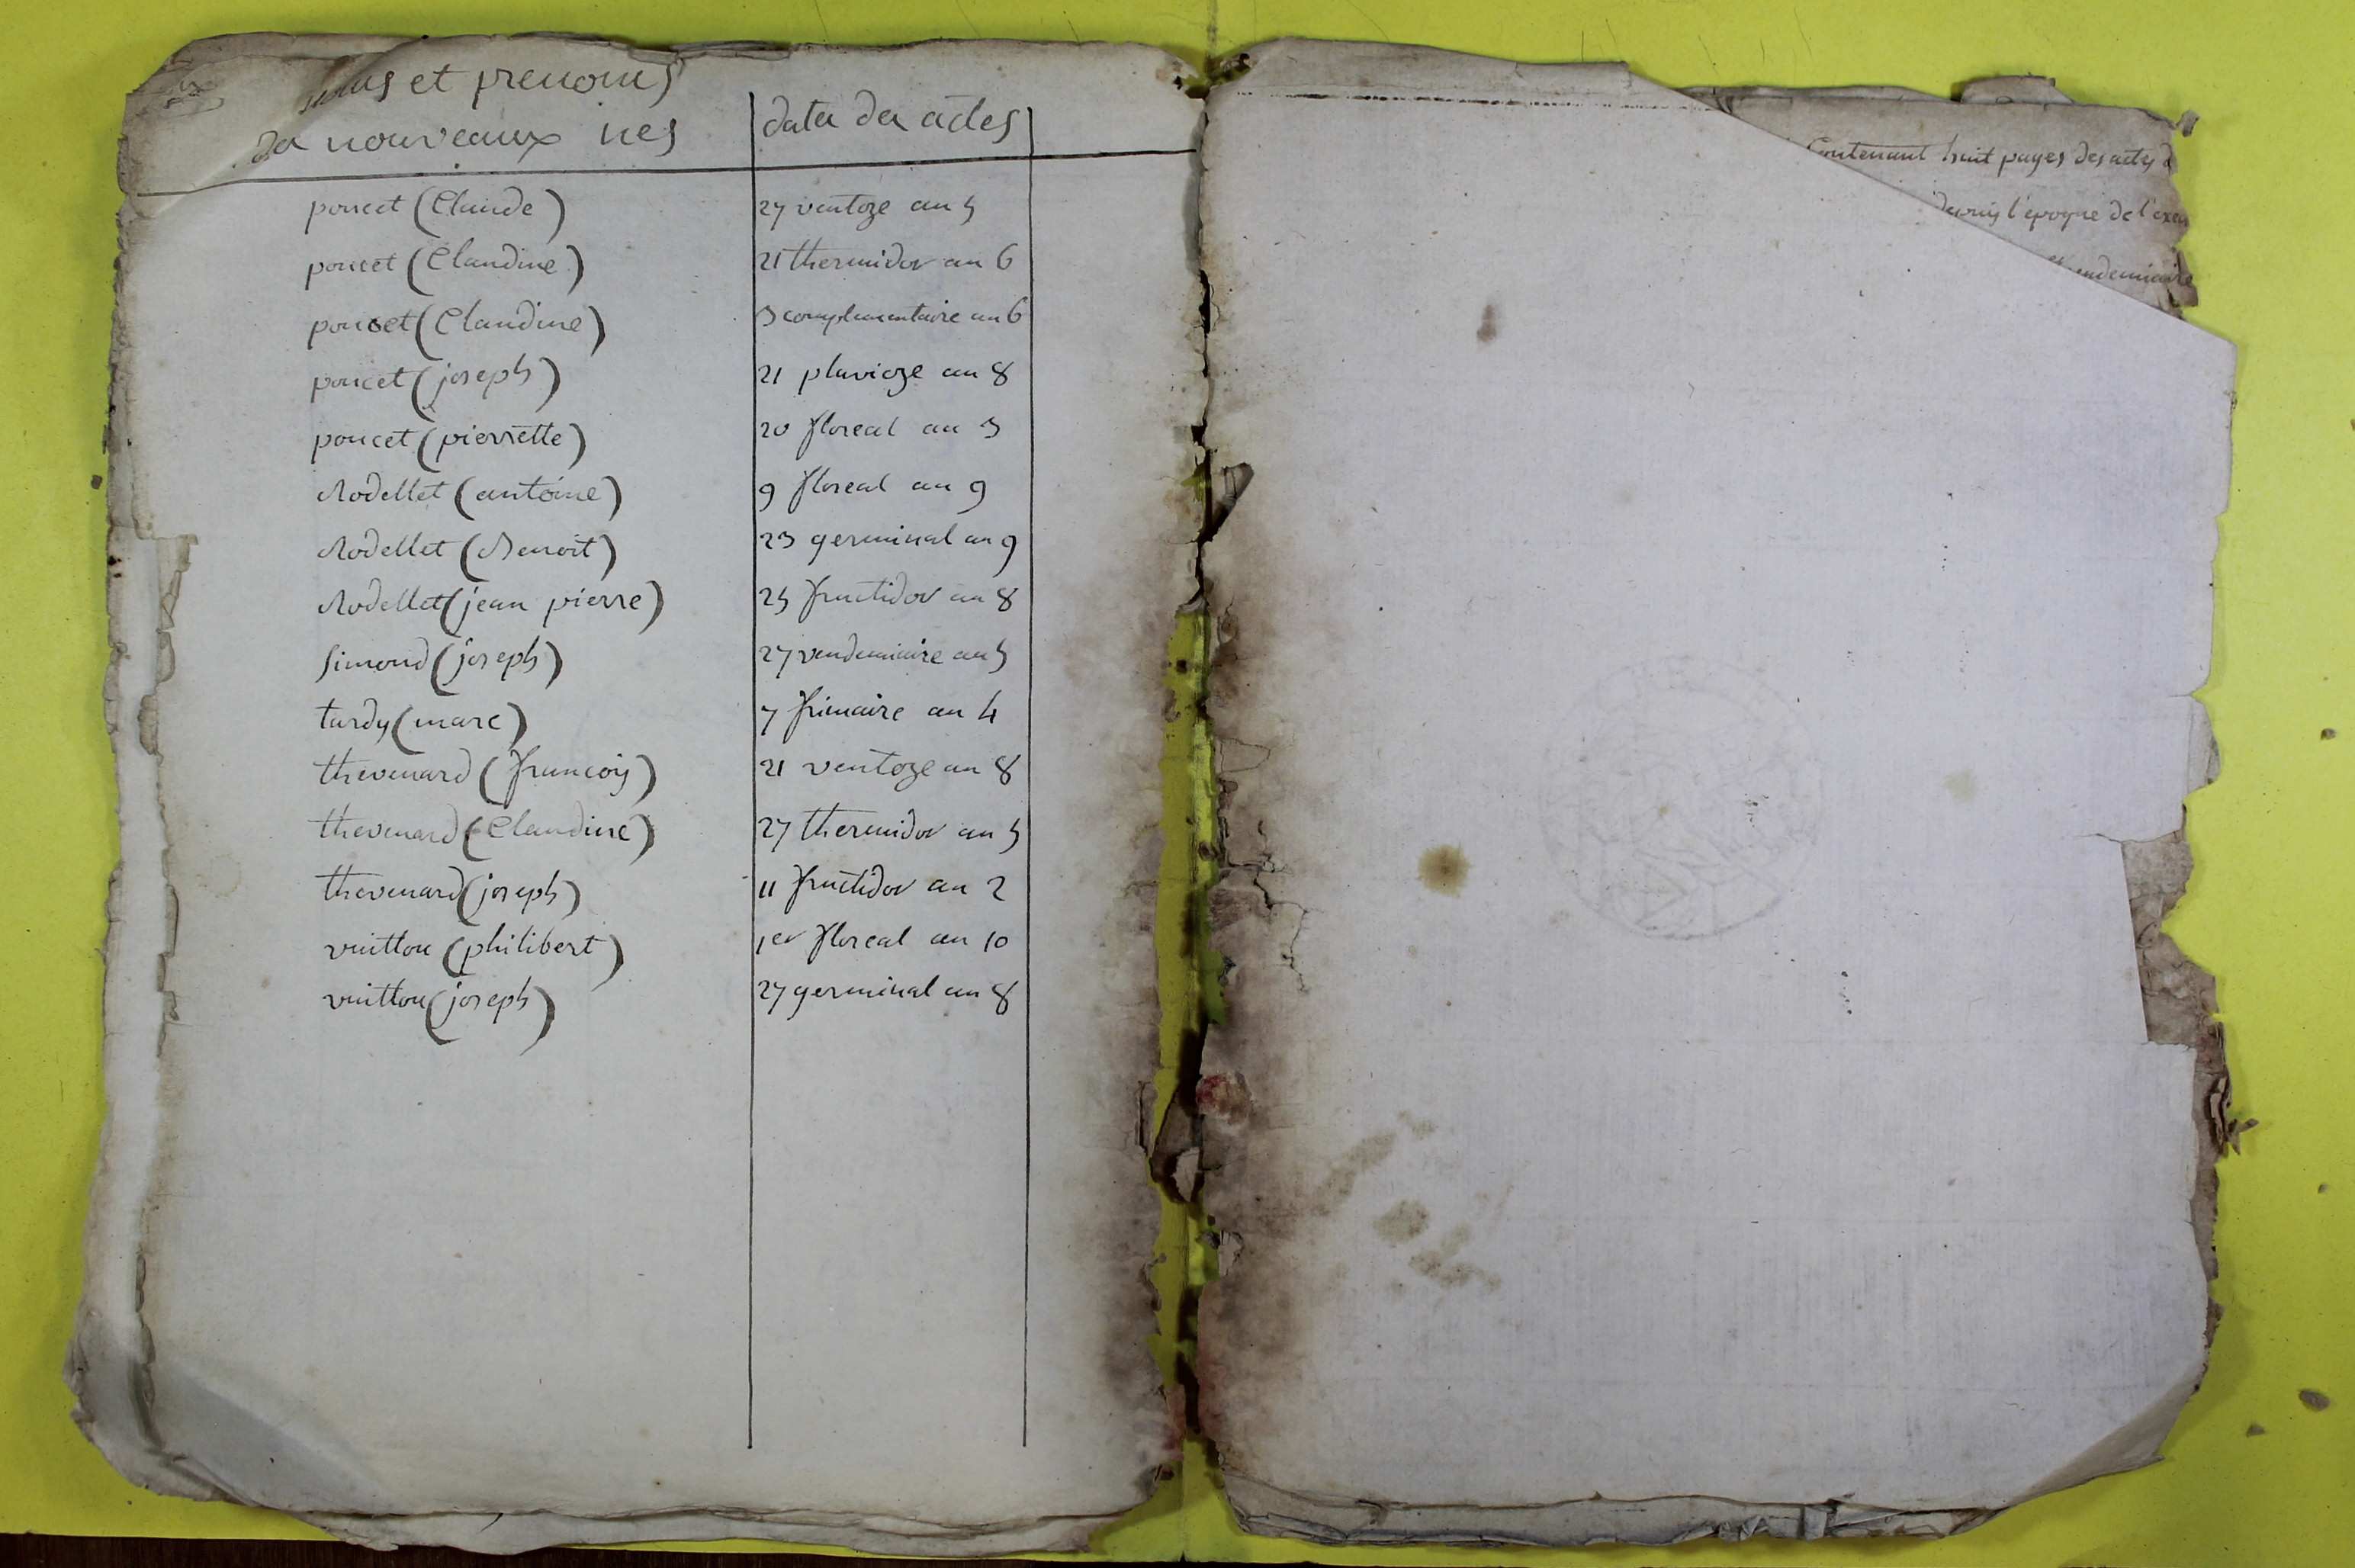 noms et prenoms
des nouveaux nes
dates des actes
poncet (Claude) 27 ventoze an 5
poncet (Claudine) 21 thermidor an 6
poncet (Claudine) 3 complementaire an 6
poncet (joseph) 21 pluvioze an 8
poncet (pierrette) 20 floreal an 3
Rodellet (antoine) 9 floreal an 9
Rodellet (Benoit) 23 germinal an 9
Rodellet (jean pierre) 25 fructidor an 8
Simond (joseph) 27 vendemiaire an 5
tardy (marc) 7 frimaire an 4
thevenard (françois) 21 ventoze an 8
thevenard (Claudine) 27 thermidor an 5
thevenard (joseph) 11 fructidor an 2
vuitton (philibert) 1er floreal an 10
vuitton (joseph) 27 germinal an 8
Contenant huit pages des actes d
depuis l'époque de l'exer
vendemiaire